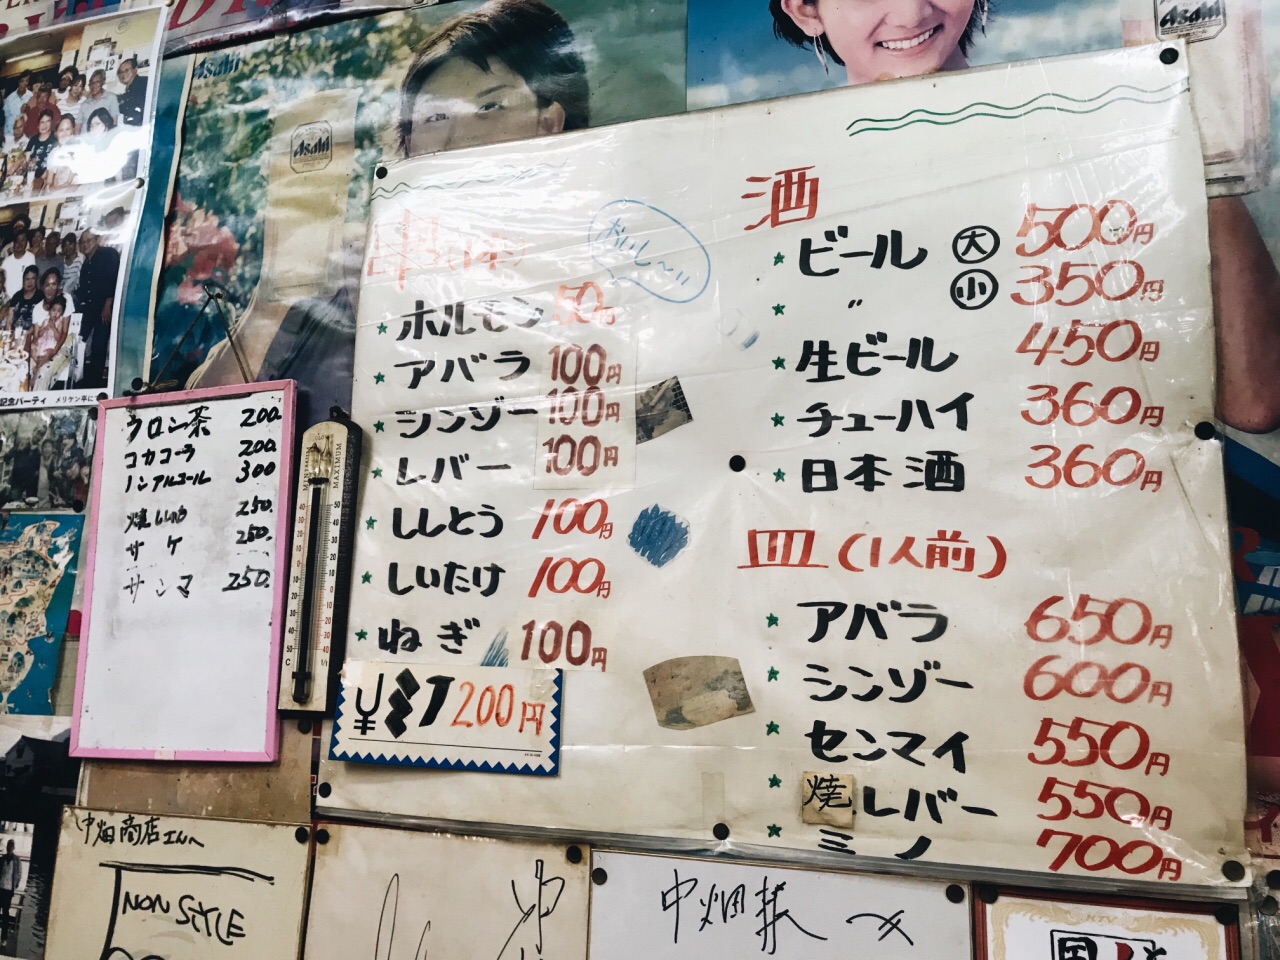 Asahi
Asahi
Asahi
記念パーティ メリケン亭に
ウロン茶 200.
コカコーラ 200.
ノンアルコール 300
焼 250.
サケ 250.
サンマ 250.
MINIMUM
MAXIMUM
串(1本)
おいし〜
★ ホルモン 50円
★ アバラ 100円
★ シンゾー 100円
★ レバー 100円
★ ししとう 100円
★ しいたけ 100円
★ ねぎ 100円
¥ミノ 200円
酒
★ ビール 大 500円
★ 〃 小 350円
★ 生ビール 450円
★ チューハイ 360円
★ 日本酒 360円
皿(1人前)
★ アバラ 650円
★ シンゾー 600円
★ センマイ 550円
★ 焼レバー 550円
★ ミノ 700円
中畑商店さんへ
NON STYLE
中畑様